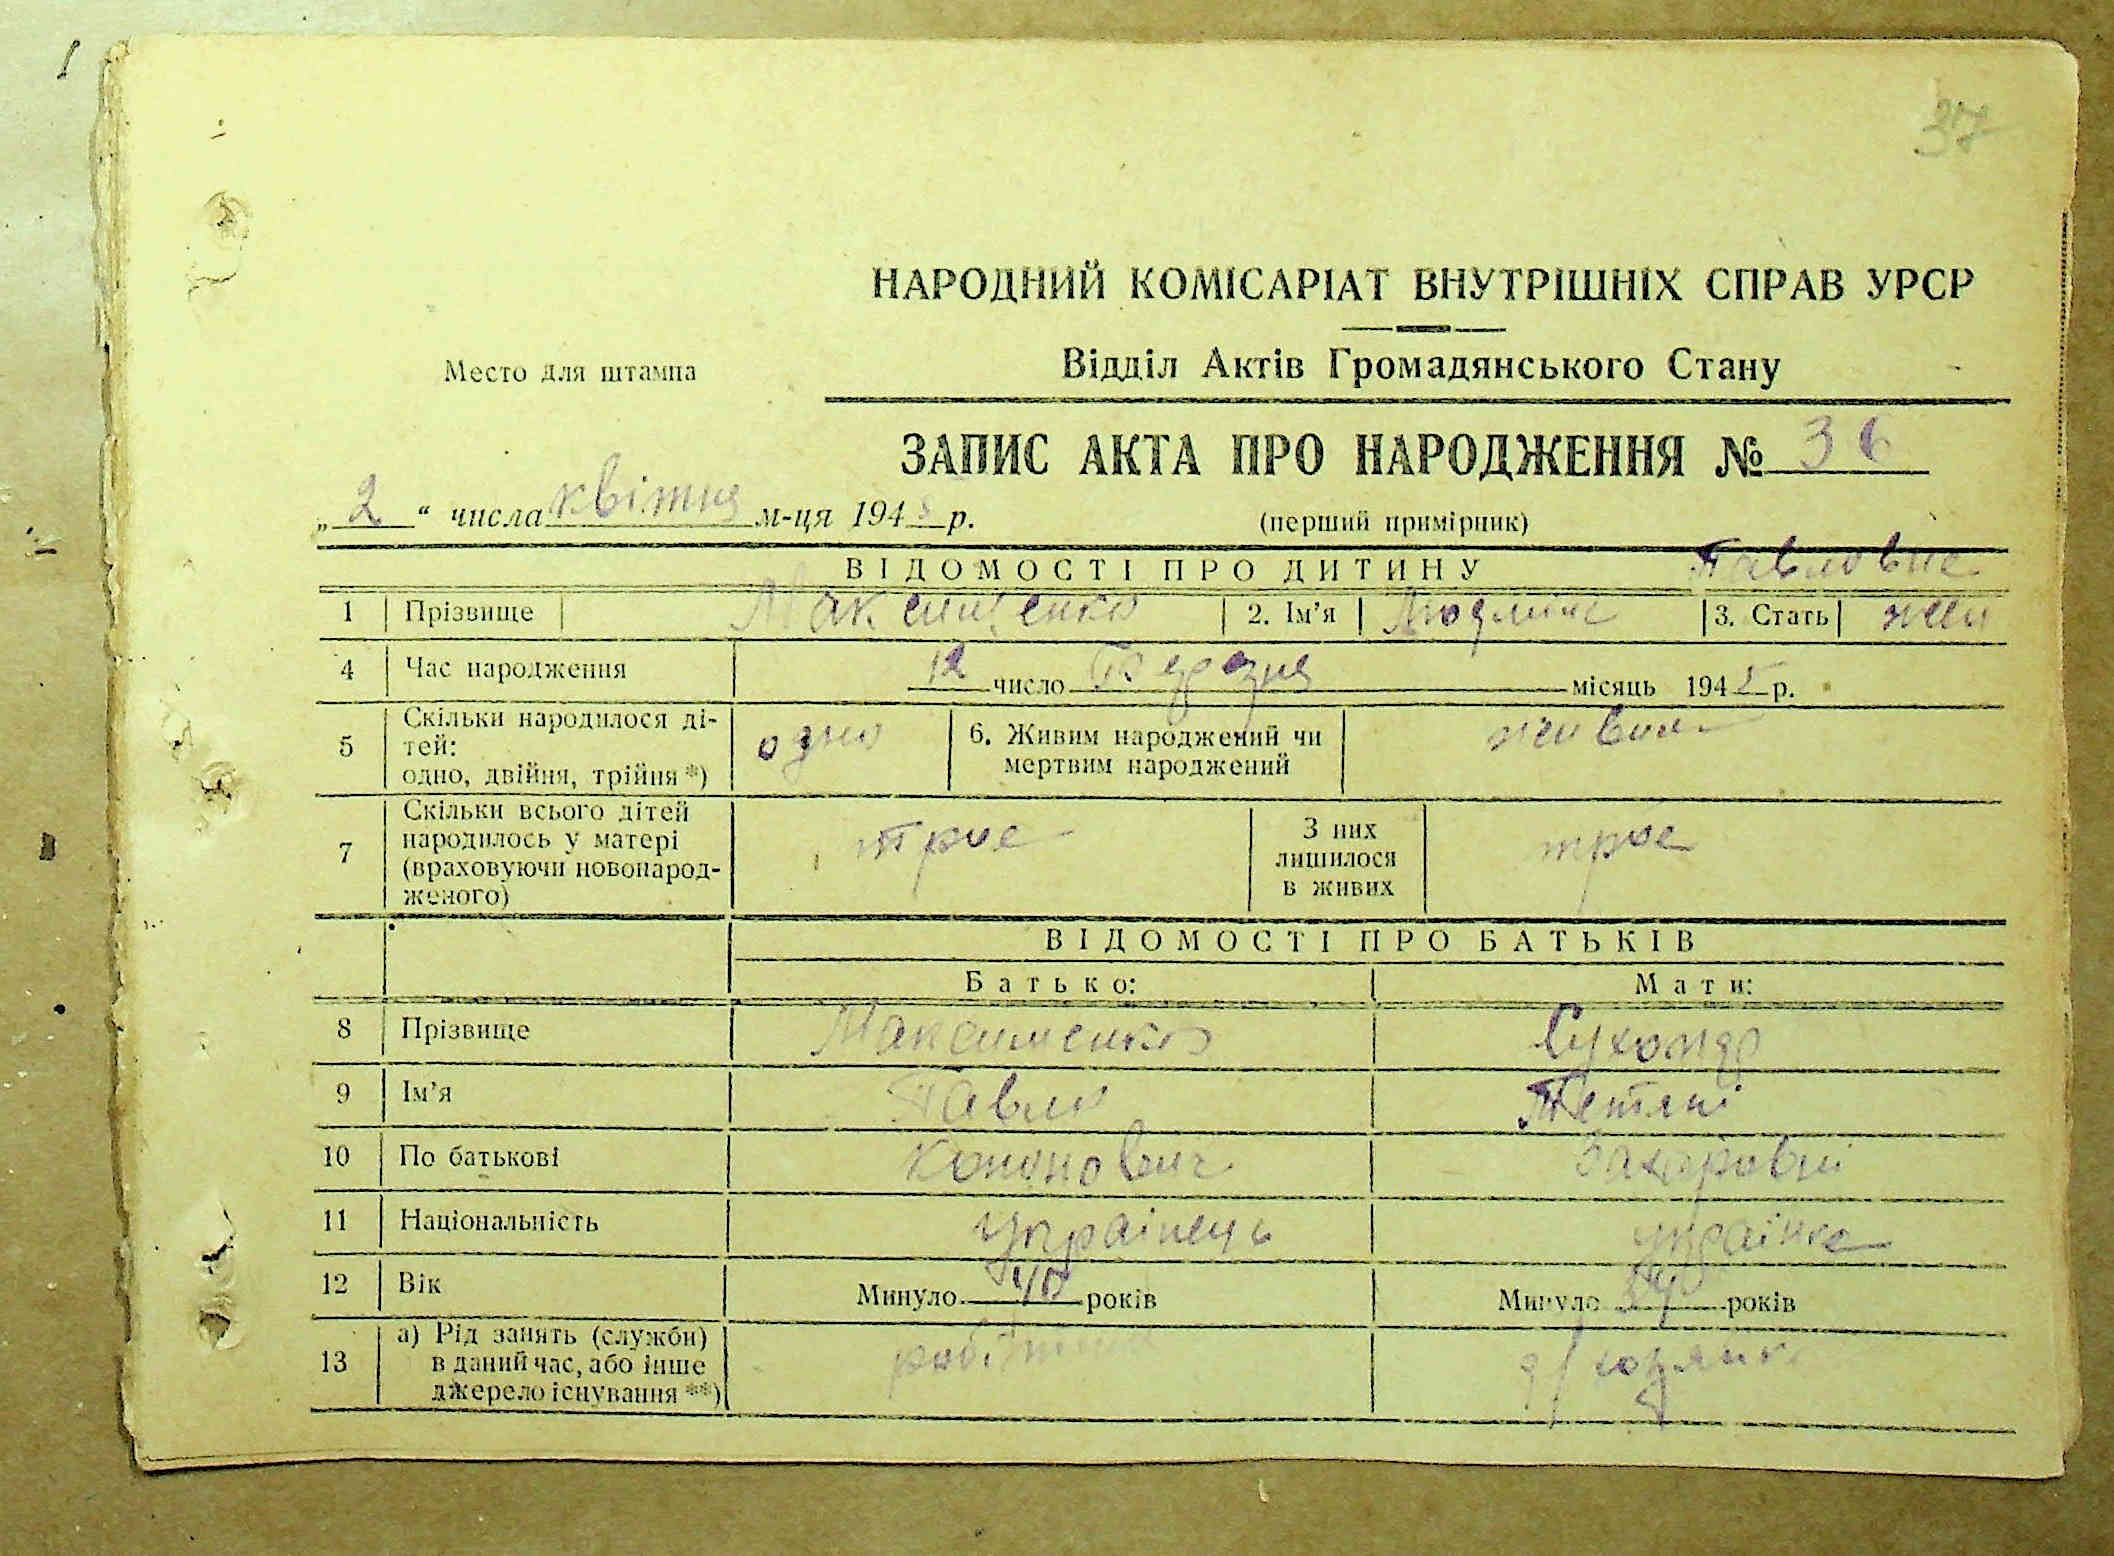 37
НАРОДНИЙ КОМІСАРІАТ ВНУТРІШНІХ СПРАВ УРСР
Место для штампа
Відділ Актів Громадянського Стану
ЗАПИС АКТА ПРО НАРОДЖЕННЯ № 36
„2“ числа квітня м-ця 1945 р. (перший примірник)
ВІДОМОСТІ ПРО ДИТИНУ Павловна
1 Прізвище Максименко 2. Ім’я Людміла 3. Стать жен
4 Час народження 12 число Березня місяць 1945 р.
5 Скільки народилося ді-
тей:
одно, двійня, трійня *) одно 6. Живим народжений чи
мертвим народжений живим
7 Скільки всього дітей
народилось у матері
(враховуючи новонарод-
женого) трое З них
лишилося
в живих трое
ВІДОМОСТІ ПРО БАТЬКІВ
Батько: Мати:
8 Прізвище Максименко
9 Ім’я Павло Тетяні
10 По батькові Кононович Захаровні
11 Національність українець українка
12 Вік Минуло 40 років Минуло 34 років
13 а) Рід занять (служби)
в даний час, або інше
джерело існування **) робітник